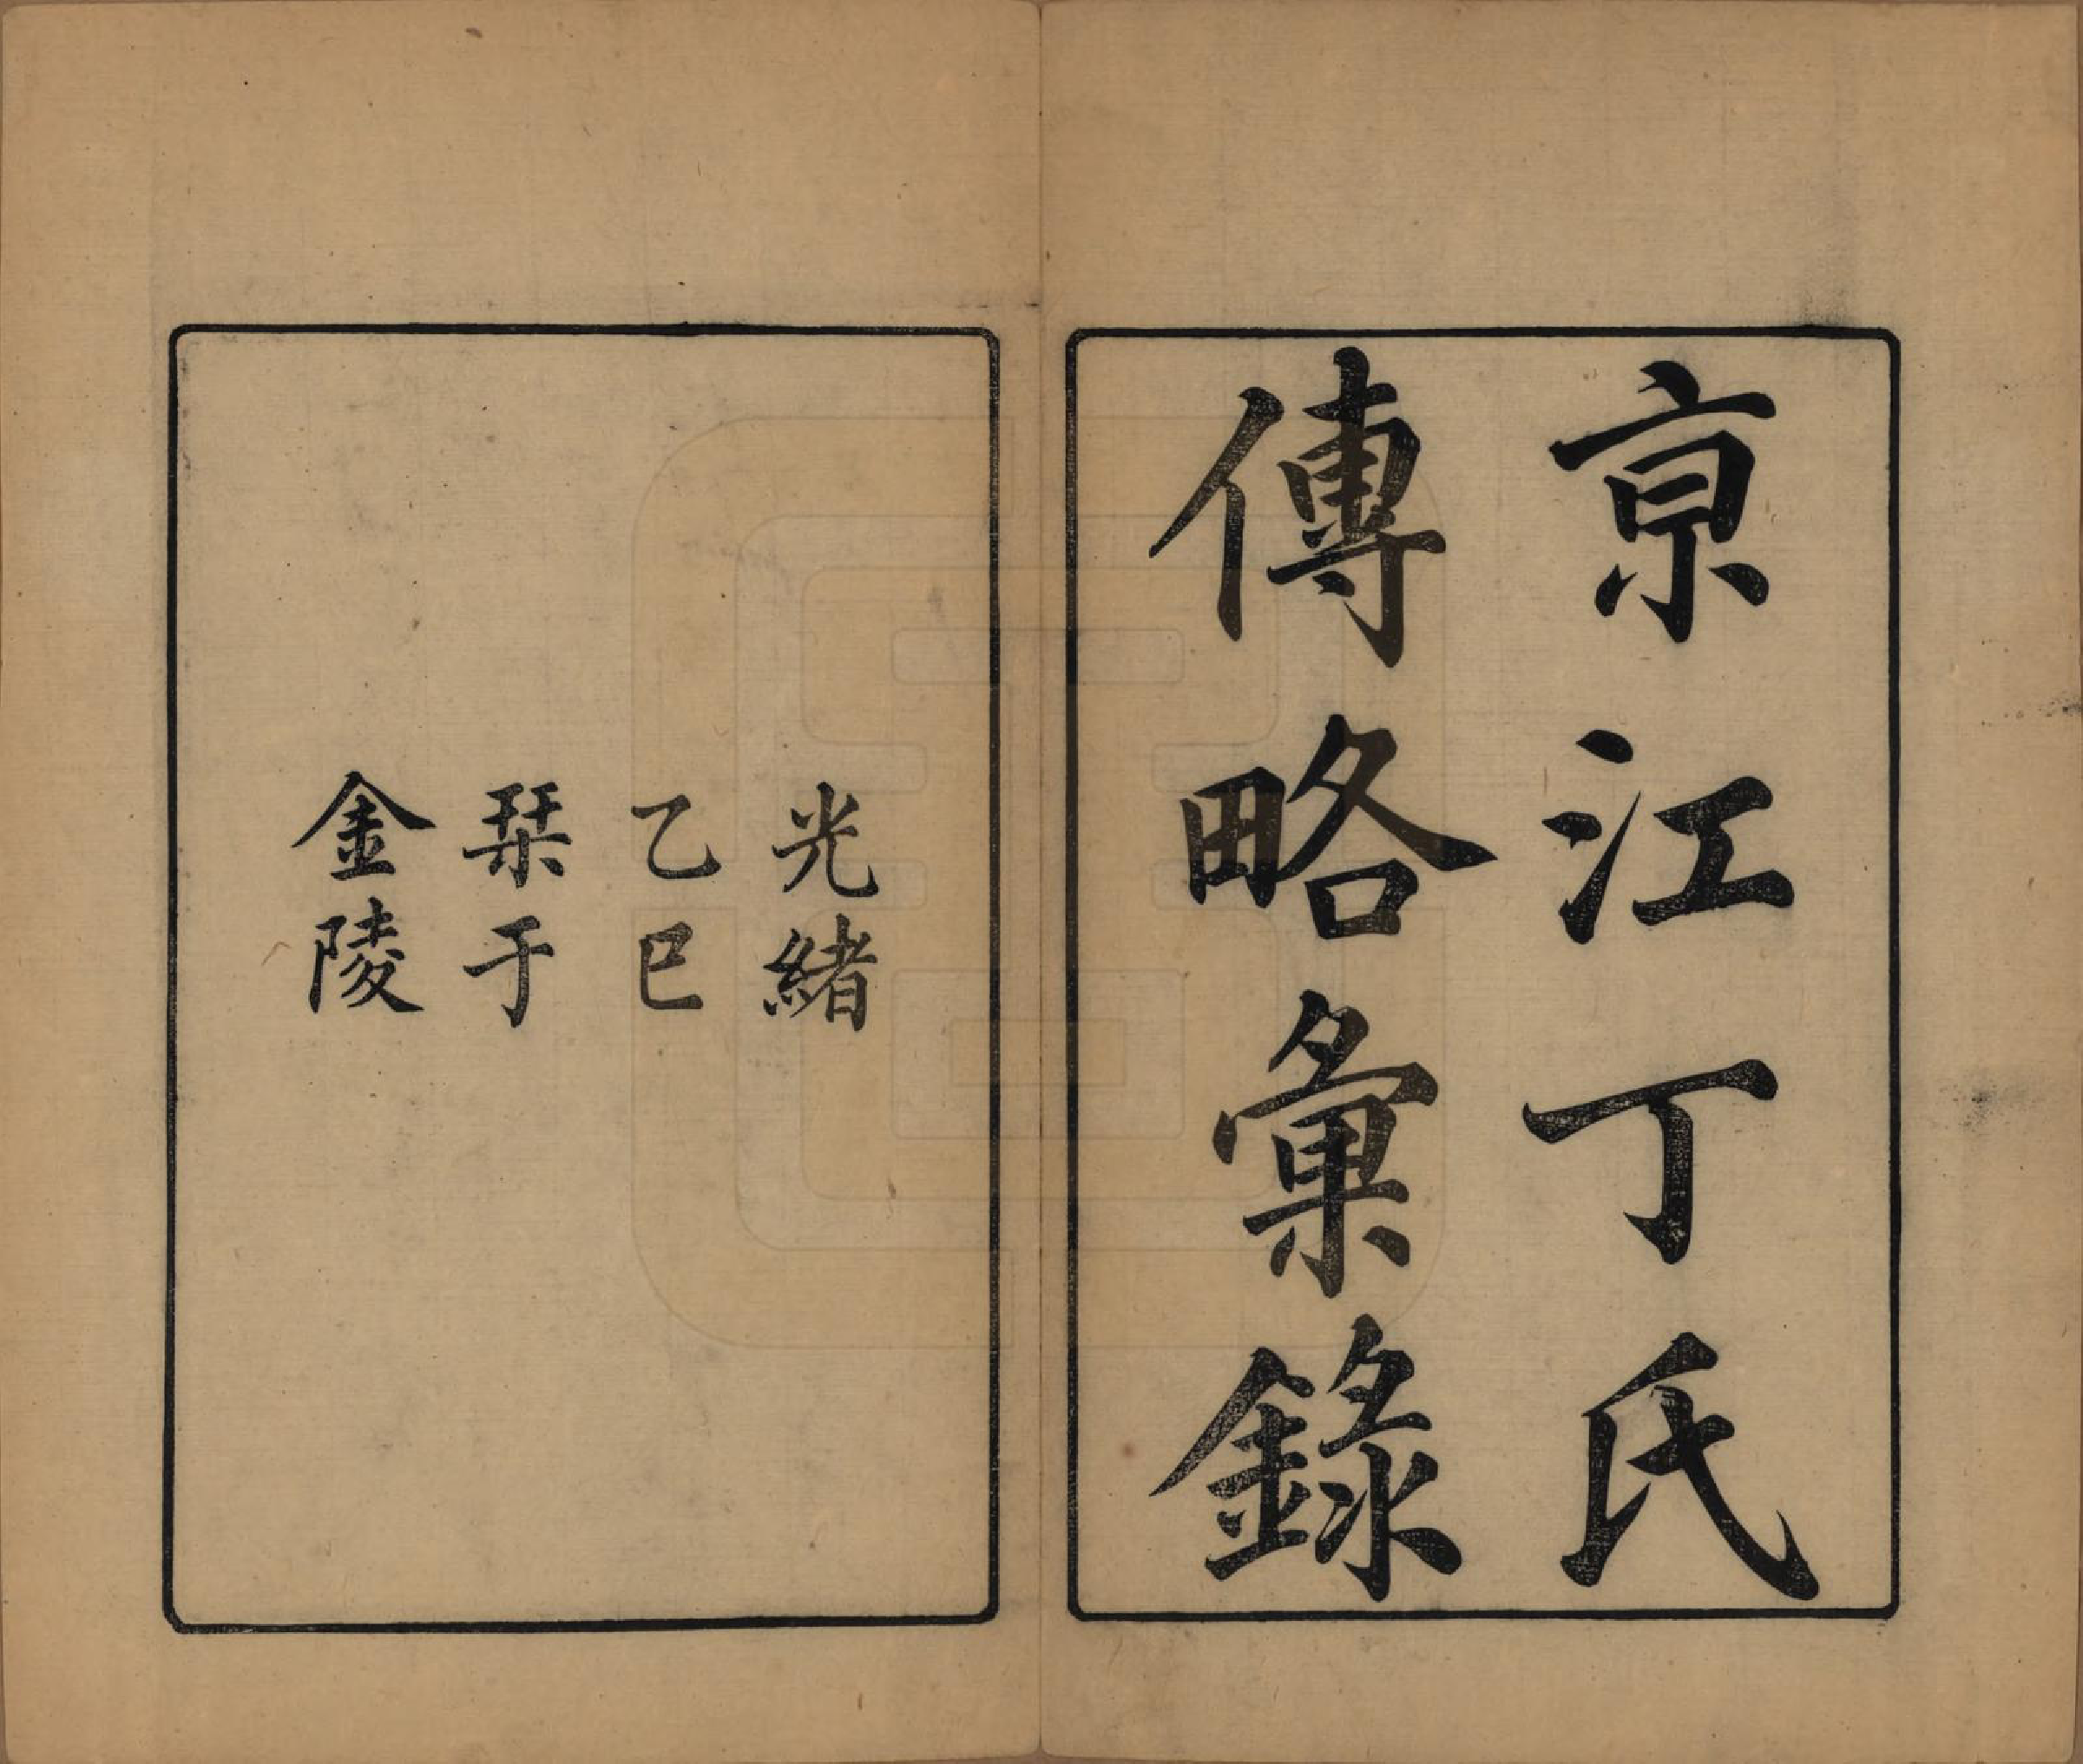 亰江丁氏
傳略彙錄
光緒
乙巳
栞于
金陵